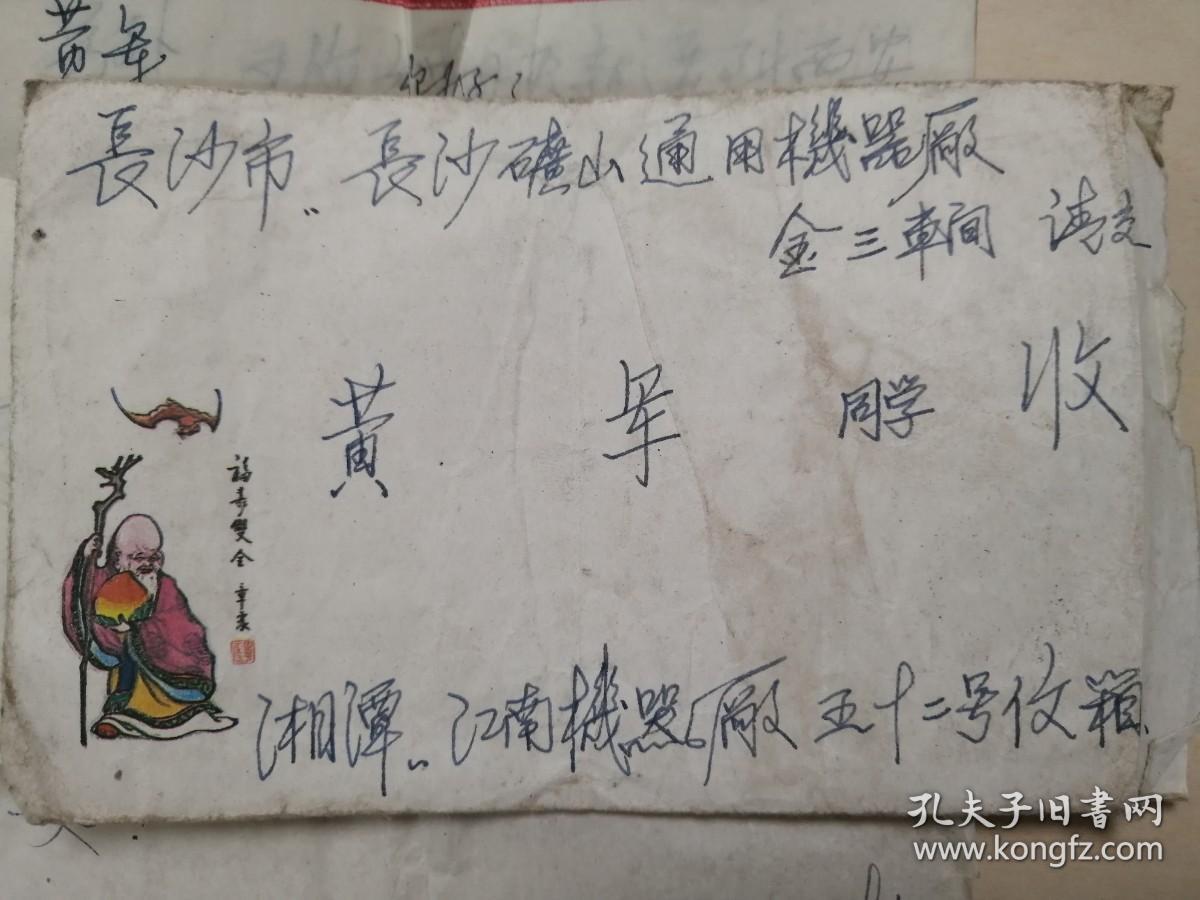 黄军
你好!
長沙市,, 長沙礦山通用機器廠
金三車间 请交
黄 军 同学 收
福寿雙全 章奕
湘潭,, 江南機器廠 五十二号信箱
孔夫子旧书网
www.kongfz.com